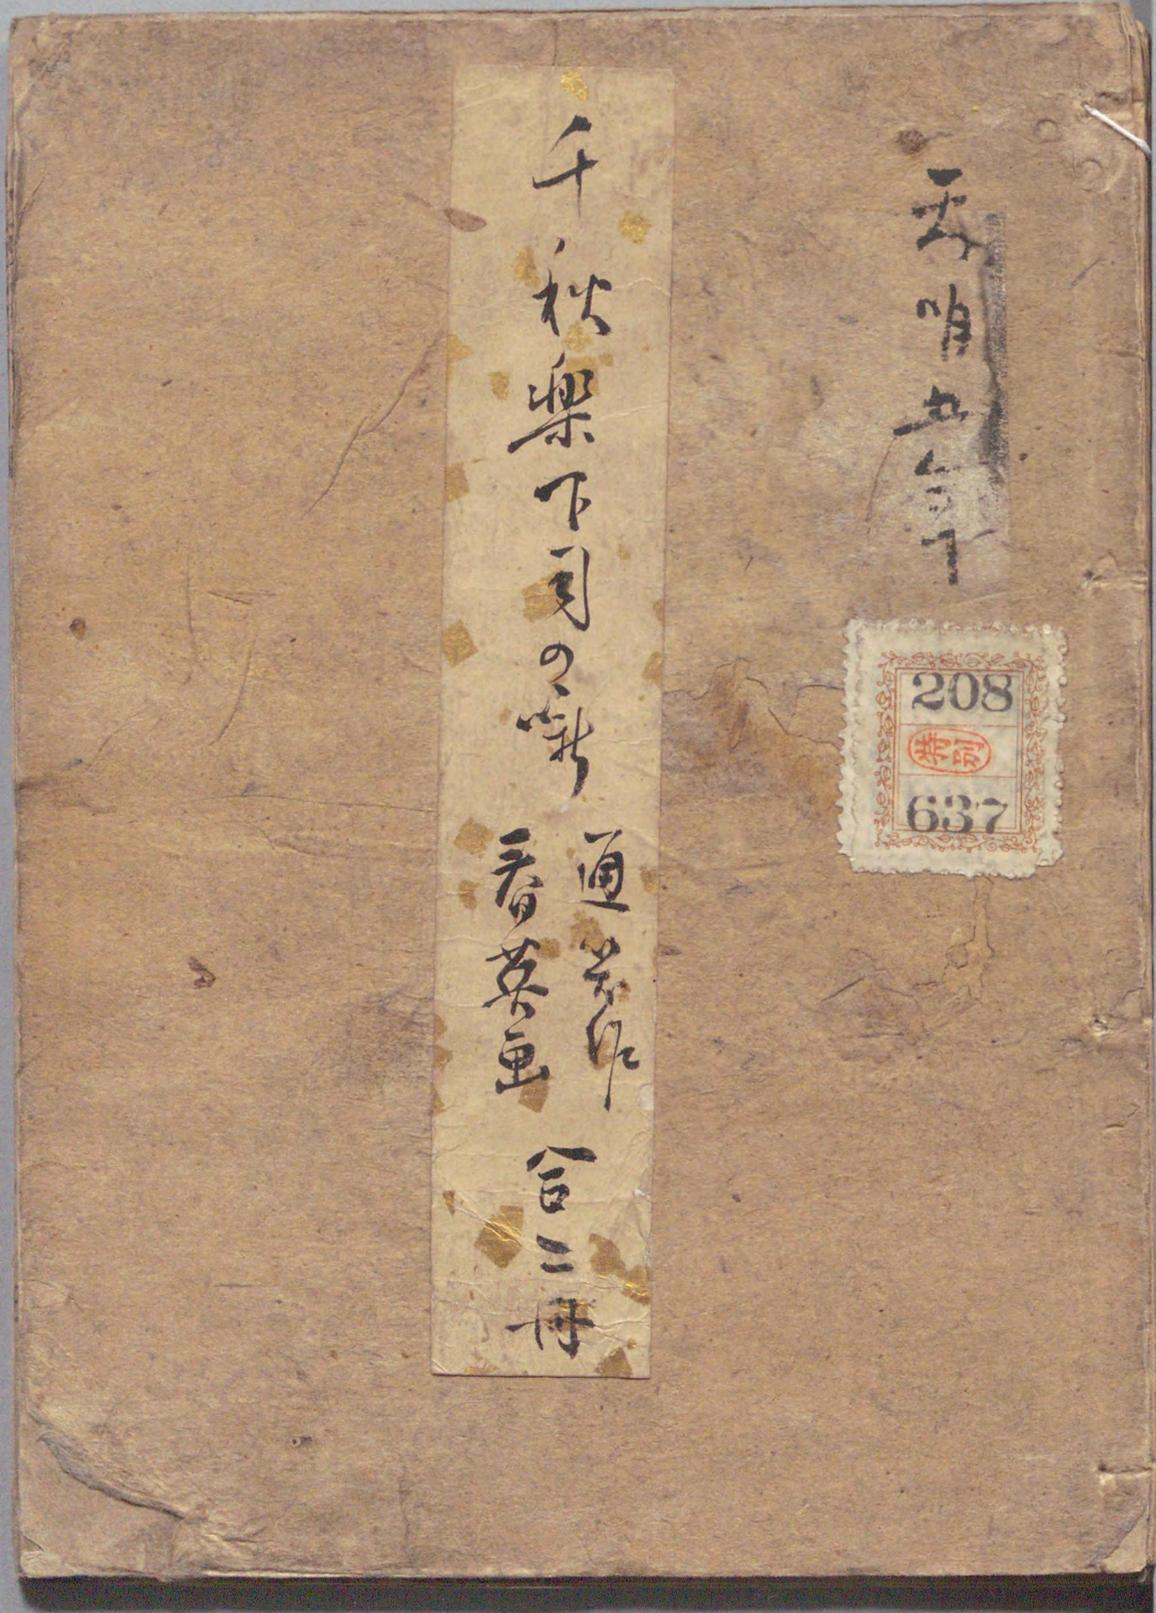 天明五年
208
特別
637
千秋楽下司の噺
通笑作
春英画
合二冊